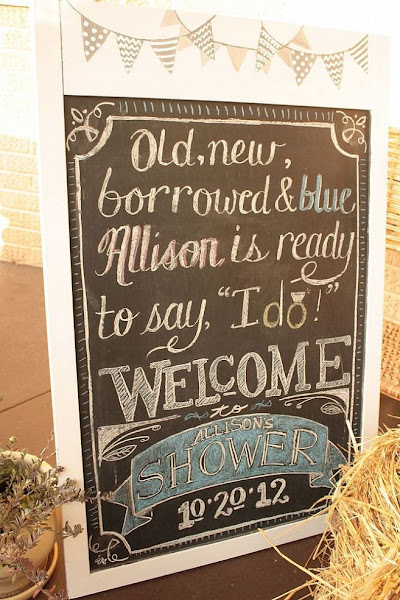 Old, new,
borrowed & blue
Allison is ready
to say, "I do!"
WELCOME
to
ALLISON'S
SHOWER
10·20·12